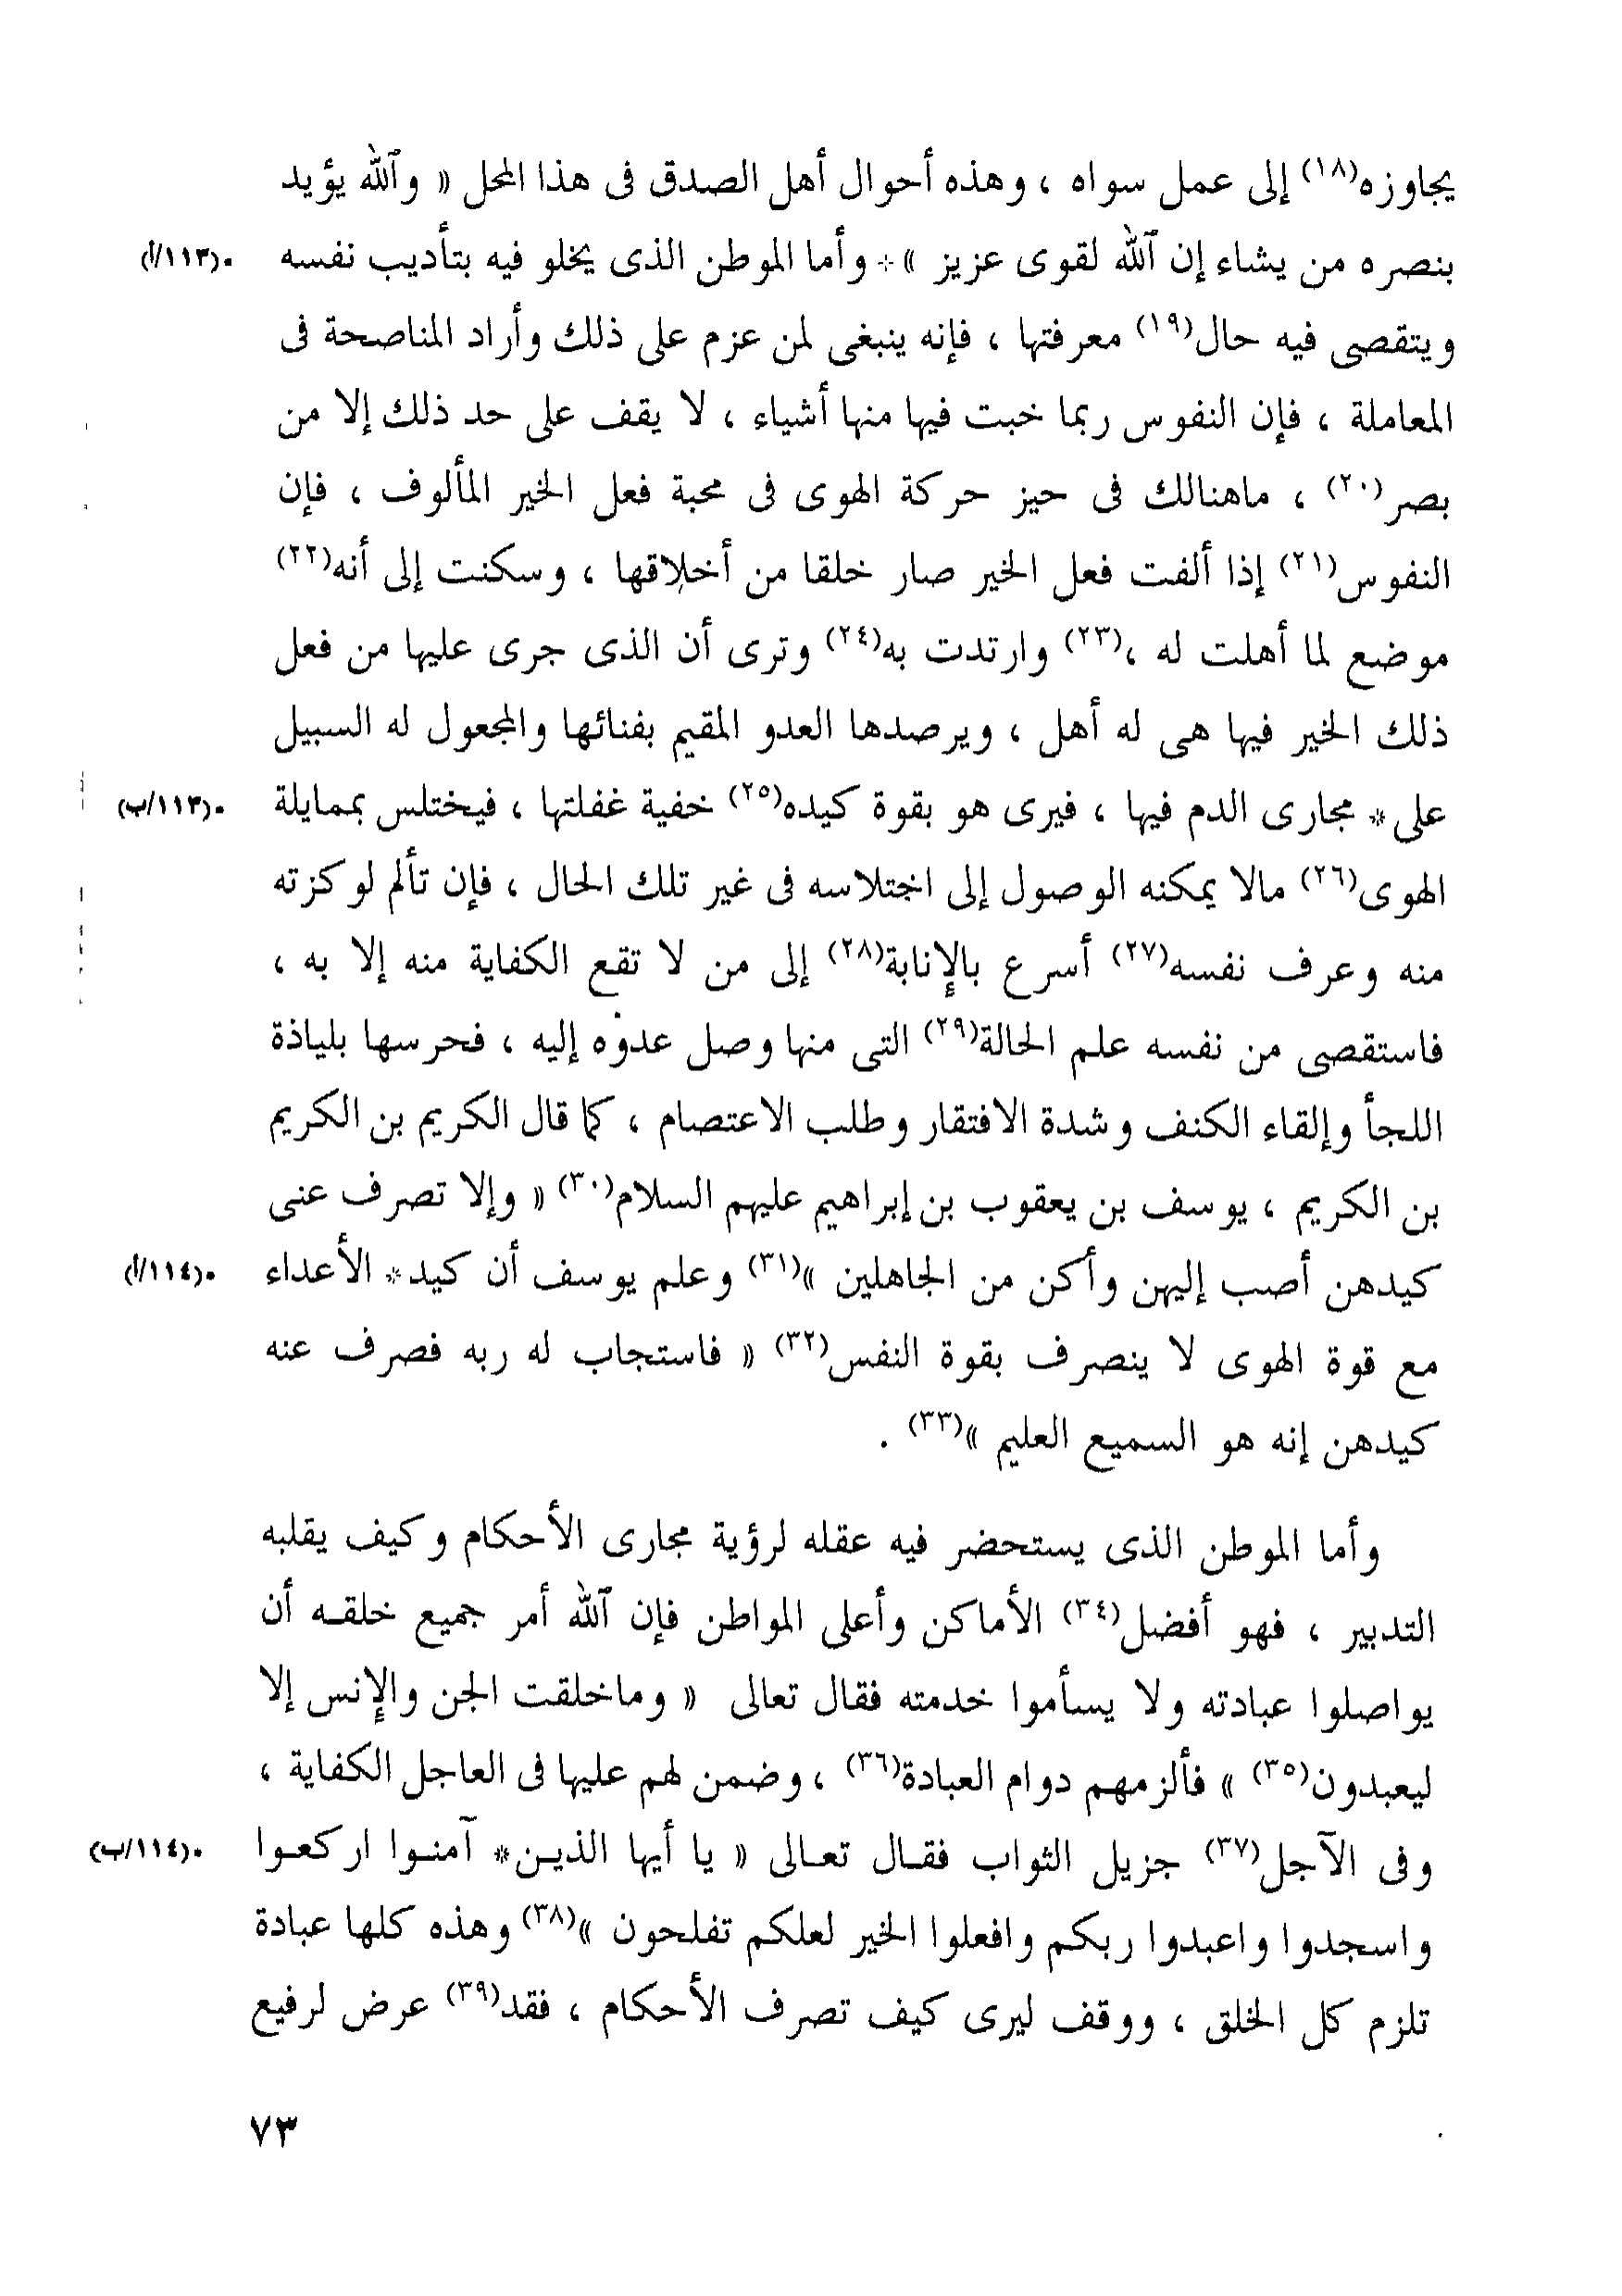 يجاوزه(١٨) إلى عمل سواه ، وهذه أحوال أهل الصدق فى هذا المحل « والله يؤيد
بنصره من يشاء إن الله لقوى عزيز »* وأما الموطن الذى يخلو فيه بتأديب نفسه ٠(١١٣/أ)
ويتقصى فيه حال(١٩) معرفتها ، فإنه ينبغى لمن عزم على ذلك وأراد المناصحة فى
المعاملة ، فإن النفوس ربما خبت فيها منها أشياء ، لا يقف على حد ذلك إلا من
بصر(٢٠) ، ماهنالك فى حيز حركة الهوى فى محبة فعل الخير المألوف ، فإن
النفوس(٢١) إذا ألفت فعل الخير صار خلقا من أخلاقها ، وسكنت إلى أنه(٢٢)
موضع لما أهلت له ،(٢٣) وارتدت به(٢٤) وترى أن الذى جرى عليها من فعل
ذلك الخير فيها هى له أهل ، ويرصدها العدو المقيم بفنائها والمجعول له السبيل
على* مجارى الدم فيها ، فيرى هو بقوة كيده(٢٥) خفية غفلتها ، فيختلس بممايلة ٠(١١٣/ب)
الهوى(٢٦) مالا يمكنه الوصول إلى اختلاسه فى غير تلك الحال ، فإن تألم لوكزته
منه وعرف نفسه(٢٧) أسرع بالإنابة(٢٨) إلى من لا تقع الكفاية منه إلا به ،
فاستقصى من نفسه علم الحالة(٢٩) التى منها وصل عدوه إليه ، فحرسها بلياذة
اللجأ وإلقاء الكنف وشدة الافتقار وطلب الاعتصام ، كما قال الكريم بن الكريم
بن الكريم ، يوسف بن يعقوب بن إبراهيم عليهم السلام(٣٠) « وإلا تصرف عنى
كيدهن أصب إليهن وأكن من الجاهلين »(٣١) وعلم يوسف أن كيد* الأعداء ٠(١١٤/أ)
مع قوة الهوى لا ينصرف بقوة النفس(٣٢) « فاستجاب له ربه فصرف عنه
كيدهن إنه هو السميع العليم »(٣٣) .
وأما الموطن الذى يستحضر فيه عقله لرؤية مجارى الأحكام وكيف يقلبه
التدبير ، فهو أفضل(٣٤) الأماكن وأعلى المواطن فإن الله أمر جميع خلقه أن
يواصلوا عبادته ولا يسأموا خدمته فقال تعالى « وماخلقت الجن والإنس إلا
ليعبدون(٣٥) » فألزمهم دوام العبادة(٣٦) ، وضمن لهم عليها فى العاجل الكفاية ،
وفى الآجل(٣٧) جزيل الثواب فقال تعالى « يا أيها الذين* آمنوا اركعوا ٠(١١٤/ب)
واسجدوا واعبدوا ربكم وافعلوا الخير لعلكم تفلحون »(٣٨) وهذه كلها عبادة
تلزم كل الخلق ، ووقف ليرى كيف تصرف الأحكام ، فقد(٣٩) عرض لرفيع
٧٣